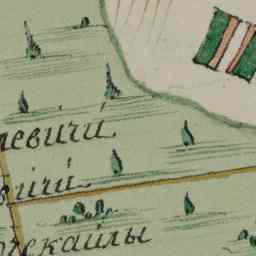 левичи
вичи
чекайлы